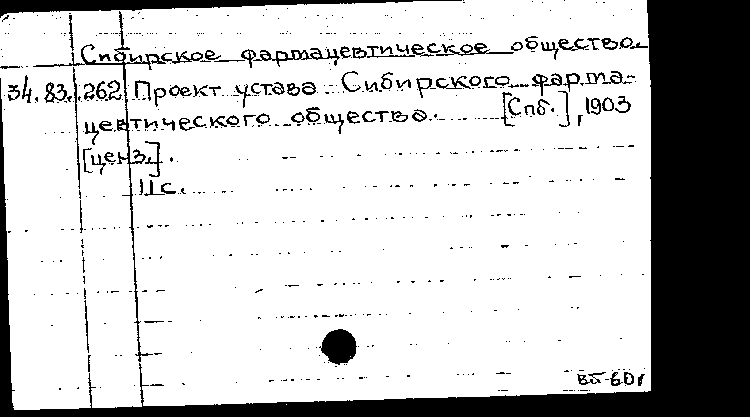 Сибирское фармацевтическое общество.
34.83.1.262 Проект устава Сибирского фарма-
цевтического общества. [Спб.], 1903
[ценз.].
11 с.
ВБ-60г